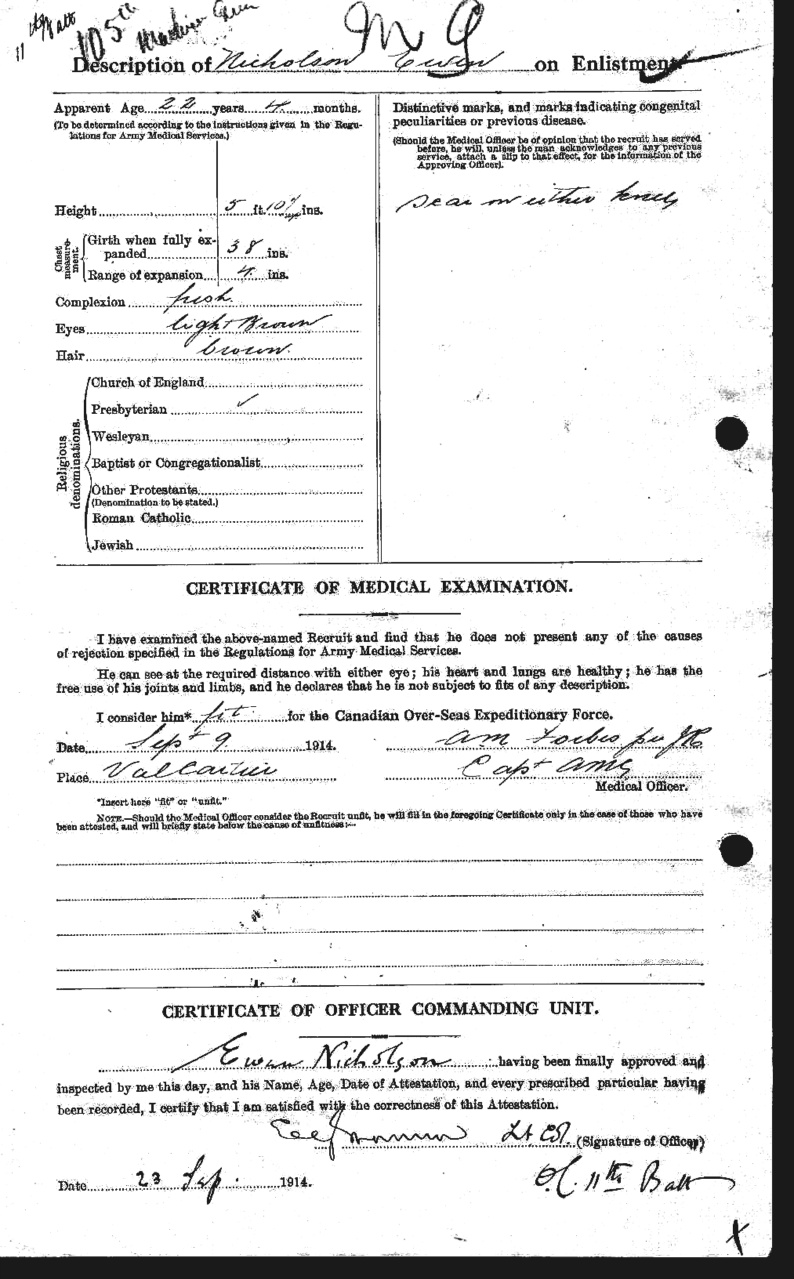 11th Batt
105th
M G
Description of Nicholson Ewen on Enlistment
Apparent Age 22 years 4 months.
(To be determined according to the instructions given in the Regu-
lations for Army Medical Services.)
Height 5 ft. 10 ins.
Chest measure-ment.
Girth when fully ex-
panded 38 ins.
Range of expansion 4 ins.
Complexion fresh.
Eyes light Brown
Hair brown.
Religious denominations.
Church of England
Presbyterian ✓
Wesleyan
Baptist or Congregationalist
Other Protestants
(Denomination to be stated.)
Roman Catholic
Jewish
Distinctive marks, and marks indicating congenital
peculiarities or previous disease.
(Should the Medical Officer be of opinion that the recruit has served
before, he will, unless the man acknowledges to any previous
service, attach a slip to that effect, for the information of the
Approving Officer).
Scar on either knee
CERTIFICATE OF MEDICAL EXAMINATION.
I have examined the above-named Recruit and find that he does not present any of the causes
of rejection specified in the Regulations for Army Medical Services.
He can see at the required distance with either eye; his heart and lungs are healthy; he has the
free use of his joints and limbs, and he declares that he is not subject to fits of any description.
I consider him* fit for the Canadian Over-Seas Expeditionary Force.
Date Sept 9 1914.
AM Forbes
Place Valcartier
Capt AMC
Medical Officer.
*Insert here "fit" or "unfit."
NOTE.—Should the Medical Officer consider the Recruit unfit, he will fill in the foregoing Certificate only in the case of those who have
been attested, and will briefly state below the cause of unfitness:—
CERTIFICATE OF OFFICER COMMANDING UNIT.
Ewen Nicholson having been finally approved and
inspected by me this day, and his Name, Age, Date of Attestation, and every prescribed particular having
been recorded, I certify that I am satisfied with the correctness of this Attestation.
Lt Col. (Signature of Officer)
Date 23 Sep. 1914.
O.C. 11th Batt
X